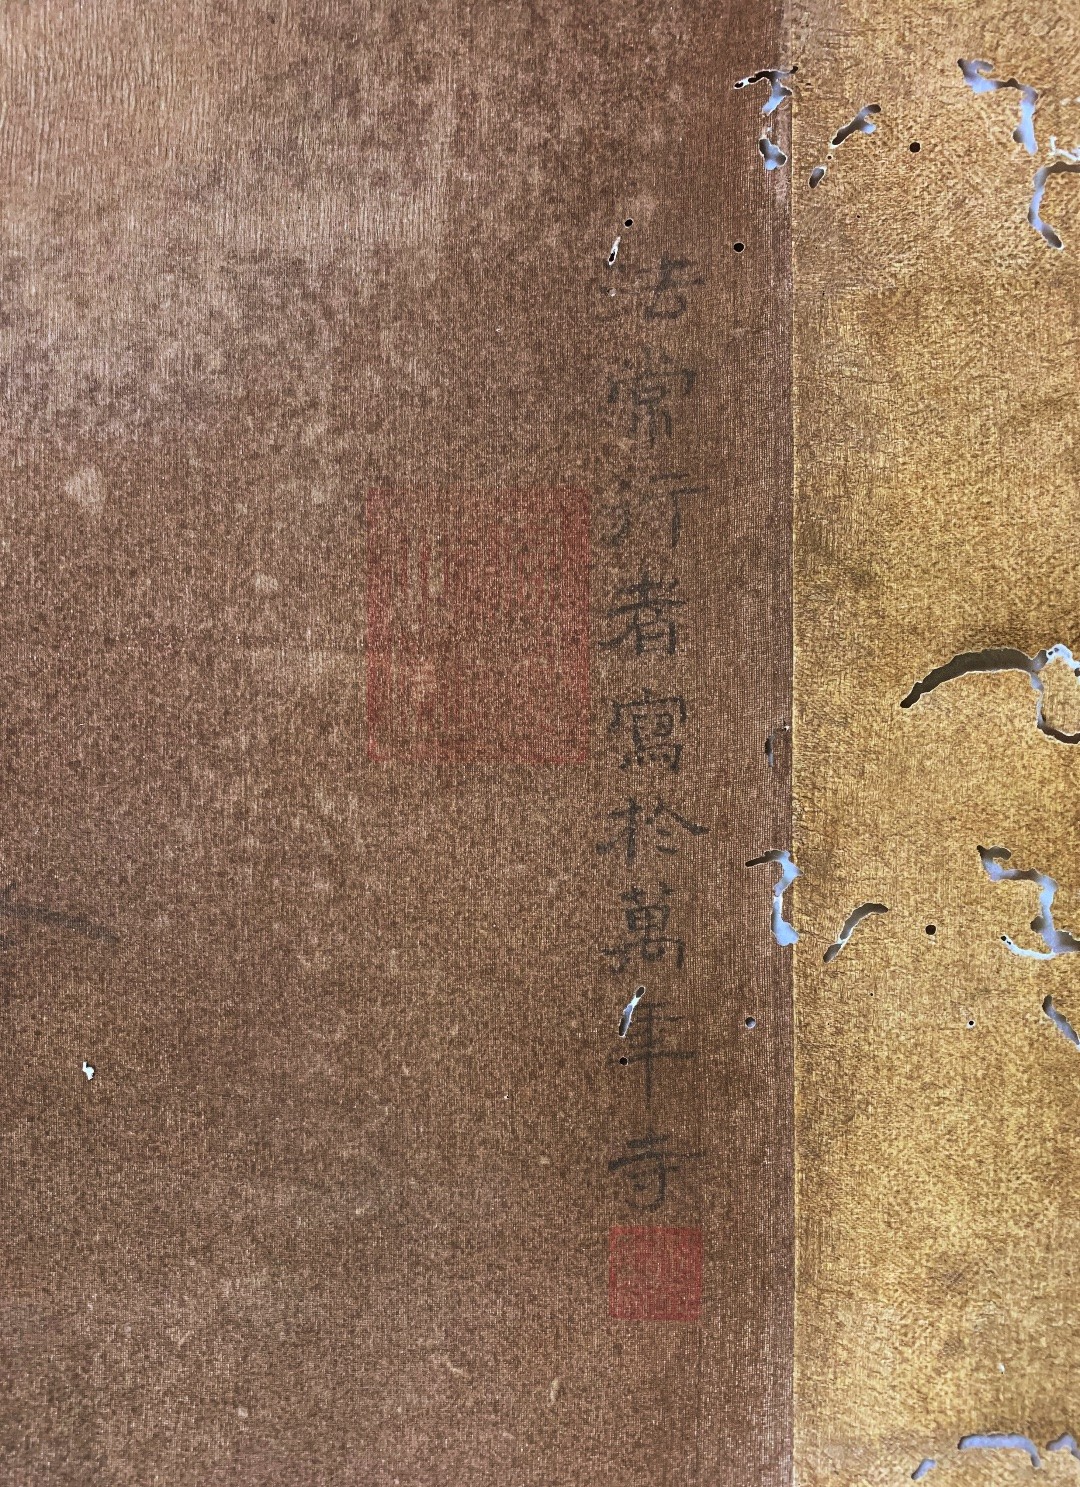 法常行者寫於萬年寺